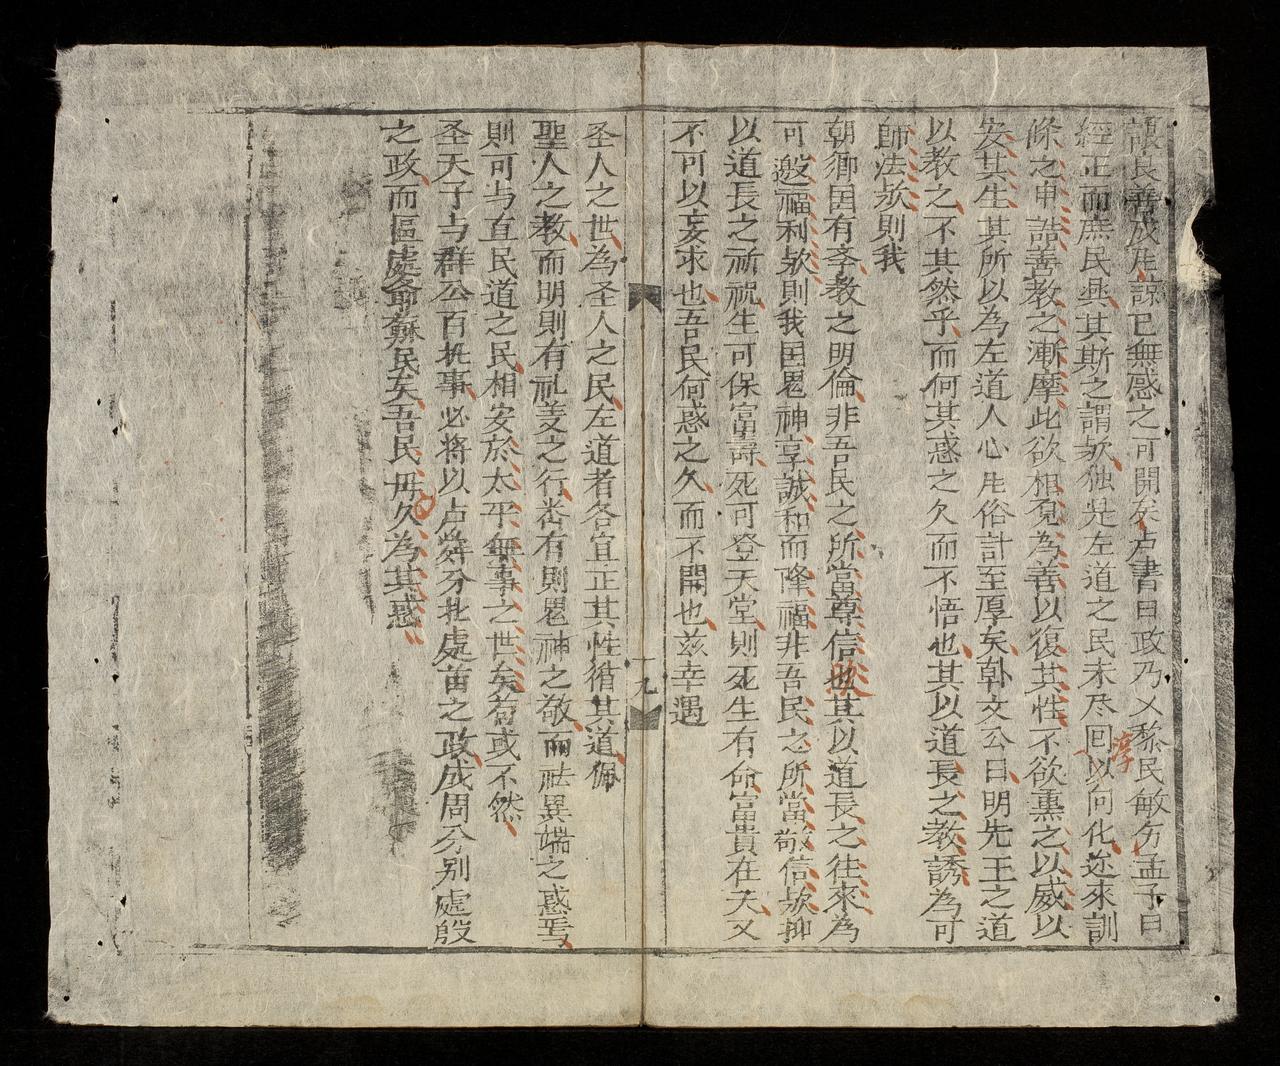 良善成居諒已無惑之可開矣卢書曰政乃乂黎民敏劳孟子曰
經正而庶民興其斯之謂欤独是左道之民未尽回以向化迩來訓
淳
條之申誥善教之漸摩此欲相覓為善以復其性不欲熏之以威以
安其生其所以為左道人心居俗計至厚矣韩文公曰明先王之道
以教之不其然乎而何其惑之久而不悟也其以道長之教誘為可
師法欤則我
朝鄉囯有孝教之明倫非吾民之所當尊信也其以道長之往來為
可邀福利欤則我囯鬼神享誠和而降福非吾民之所當敬信欤抑
以道長之祈祝生可保富壽死可登天堂則死生有命富貴在天又
不可以妄求也吾民何惑之久而不開也兹幸遇
十九
圣人之世為圣人之民左道者各宜正其性循其道佩
聖人之教而明則有礼义之行者有則鬼神之敬而祛異端之惑焉
則可与直民道之民相安於太平無事之世矣若或不然
圣天子与群公百执事必将以卢弊分北處苗之政成周分别處殷
之政而區處爺蘇民矣吾民毋久為其惑